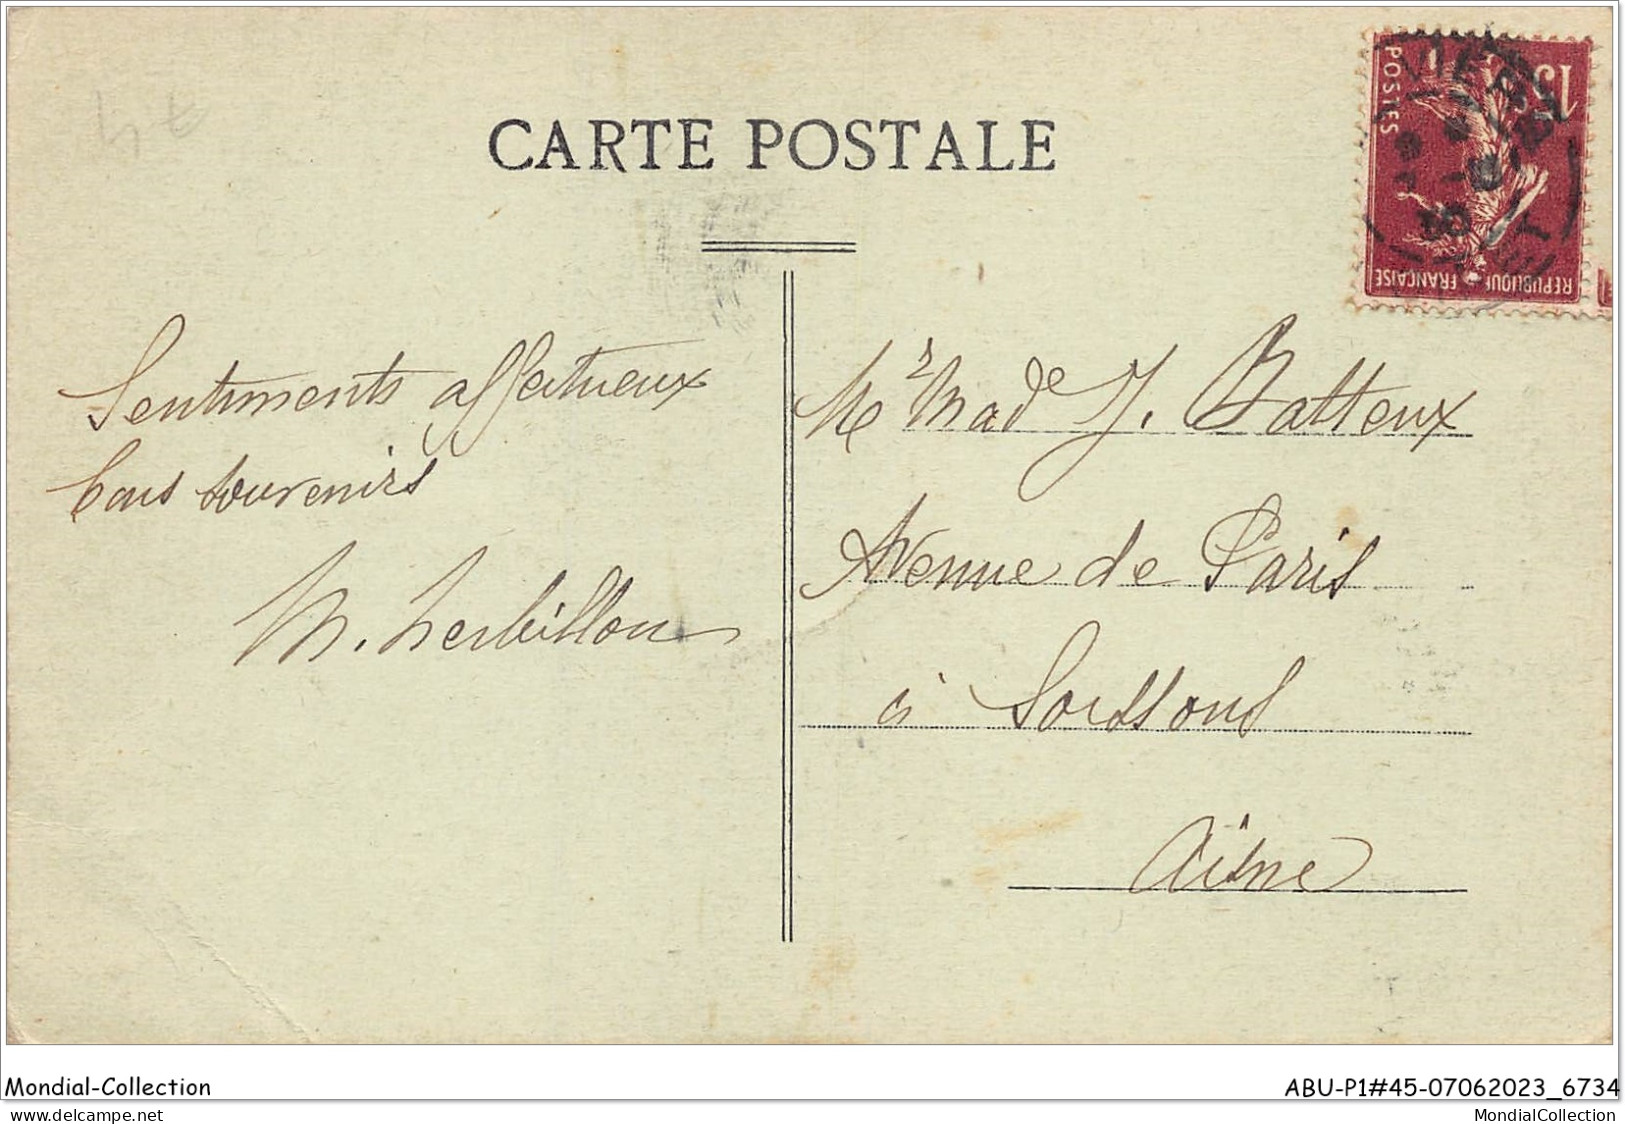 CARTE POSTALE
15
POSTES
REPUBLIQUE FRANÇAISE
Sentiments affectueux
bons souvenirs
M. Herbillon
Mr Made J. Batteux
Avenue de Paris
à Soissons
Aisne
Mondial-Collection
ABU-P1#45-07062023_6734
MondialCollection